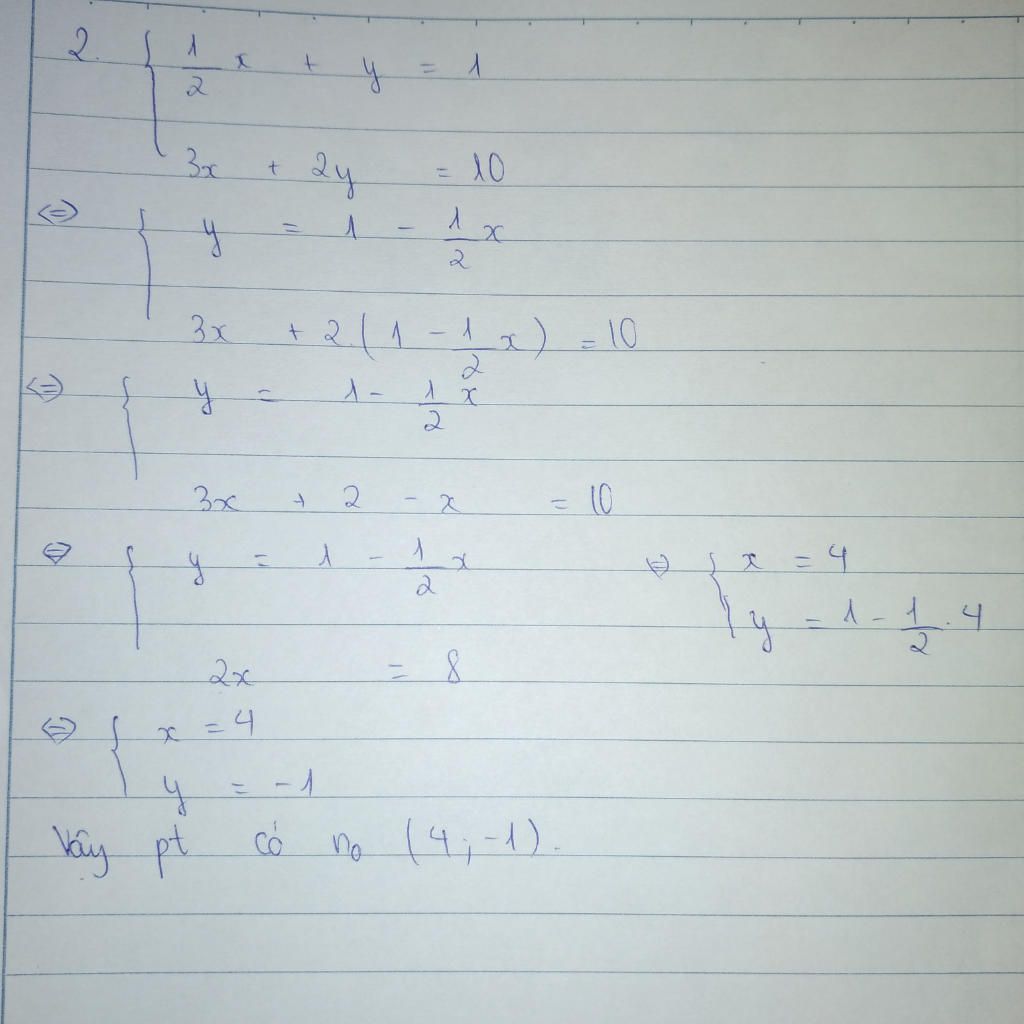 2. { 1/2 x + y = 1
3x + 2y = 10
<=> { y = 1 - 1/2 x
3x + 2.(1 - 1/2 x) = 10
<=> { y = 1 - 1/2 x
3x + 2 - x = 10
<=> { y = 1 - 1/2 x
2x = 8
<=> { x = 4
y = 1 - 1/2 . 4
<=> { x = 4
y = -1
Vây pt có no (4; -1).